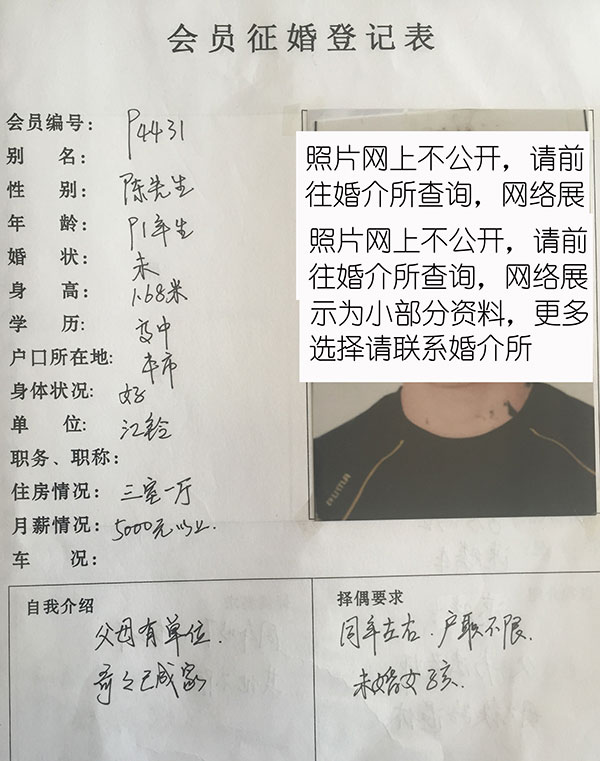 会员征婚登记表
会员编号: P4431
别 名:
性 别: 陈先生
年 龄: 91年生
婚 状: 未
身 高: 1.68米
学 历: 高中
户口所在地: 本市
身体状况: 好
单 位: 江铃
职务、职称:
住房情况: 三室一厅
月薪情况: 5000元以上.
车 况:
照片网上不公开，请前
往婚介所查询，网络展
照片网上不公开，请前
往婚介所查询，网络展
示为小部分资料，更多
选择请联系婚介所
自我介绍
父母有单位.
哥哥已成家
择偶要求
同年左右.户职不限.
未婚女孩.